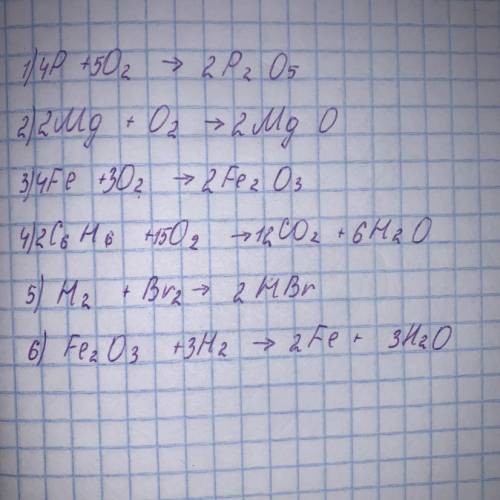 1) 4P + 5O2 → 2P2O5
2) 2Mg + O2 → 2MgO
3) 4Fe + 3O2 → 2Fe2O3
4) 2C6H6 + 15O2 → 12CO2 + 6H2O
5) H2 + Br2 → 2HBr
6) Fe2O3 + 3H2 → 2Fe + 3H2O